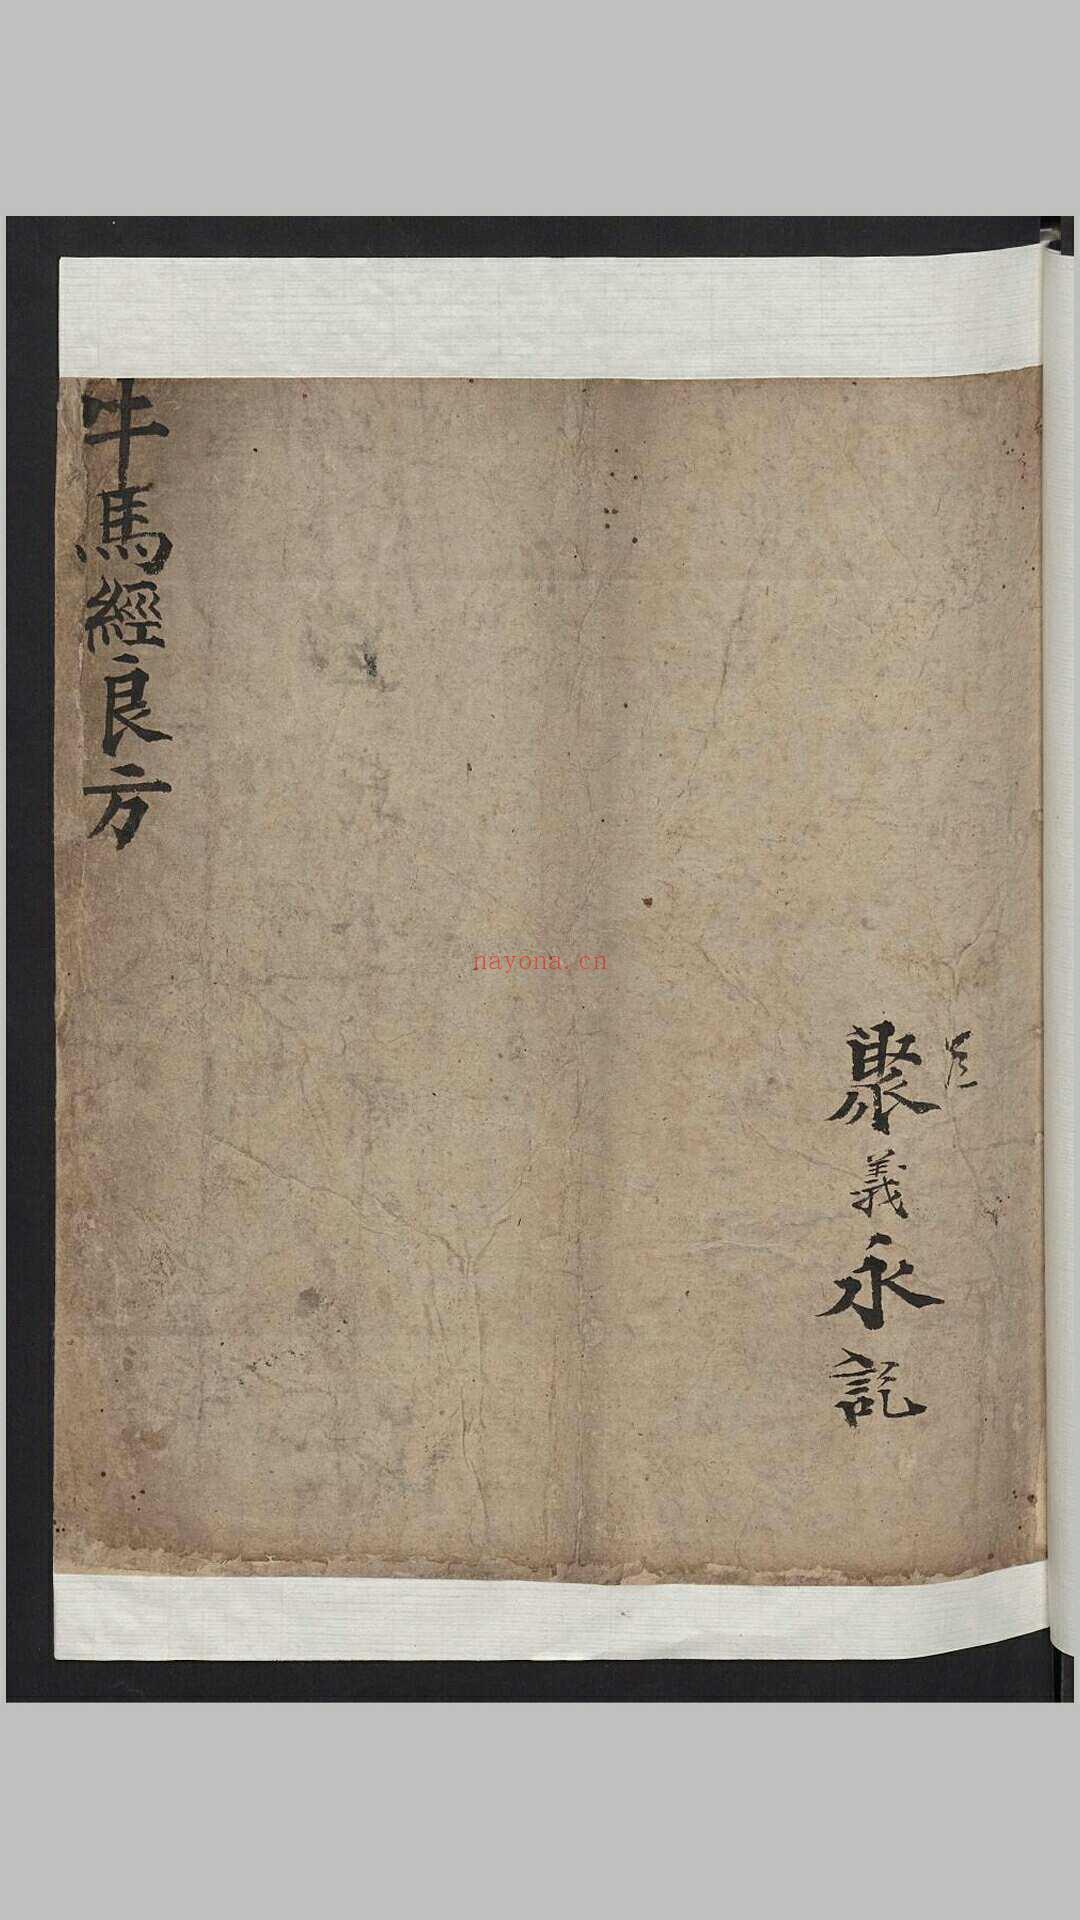 牛馬經良方
聚義永記
nayona.cn